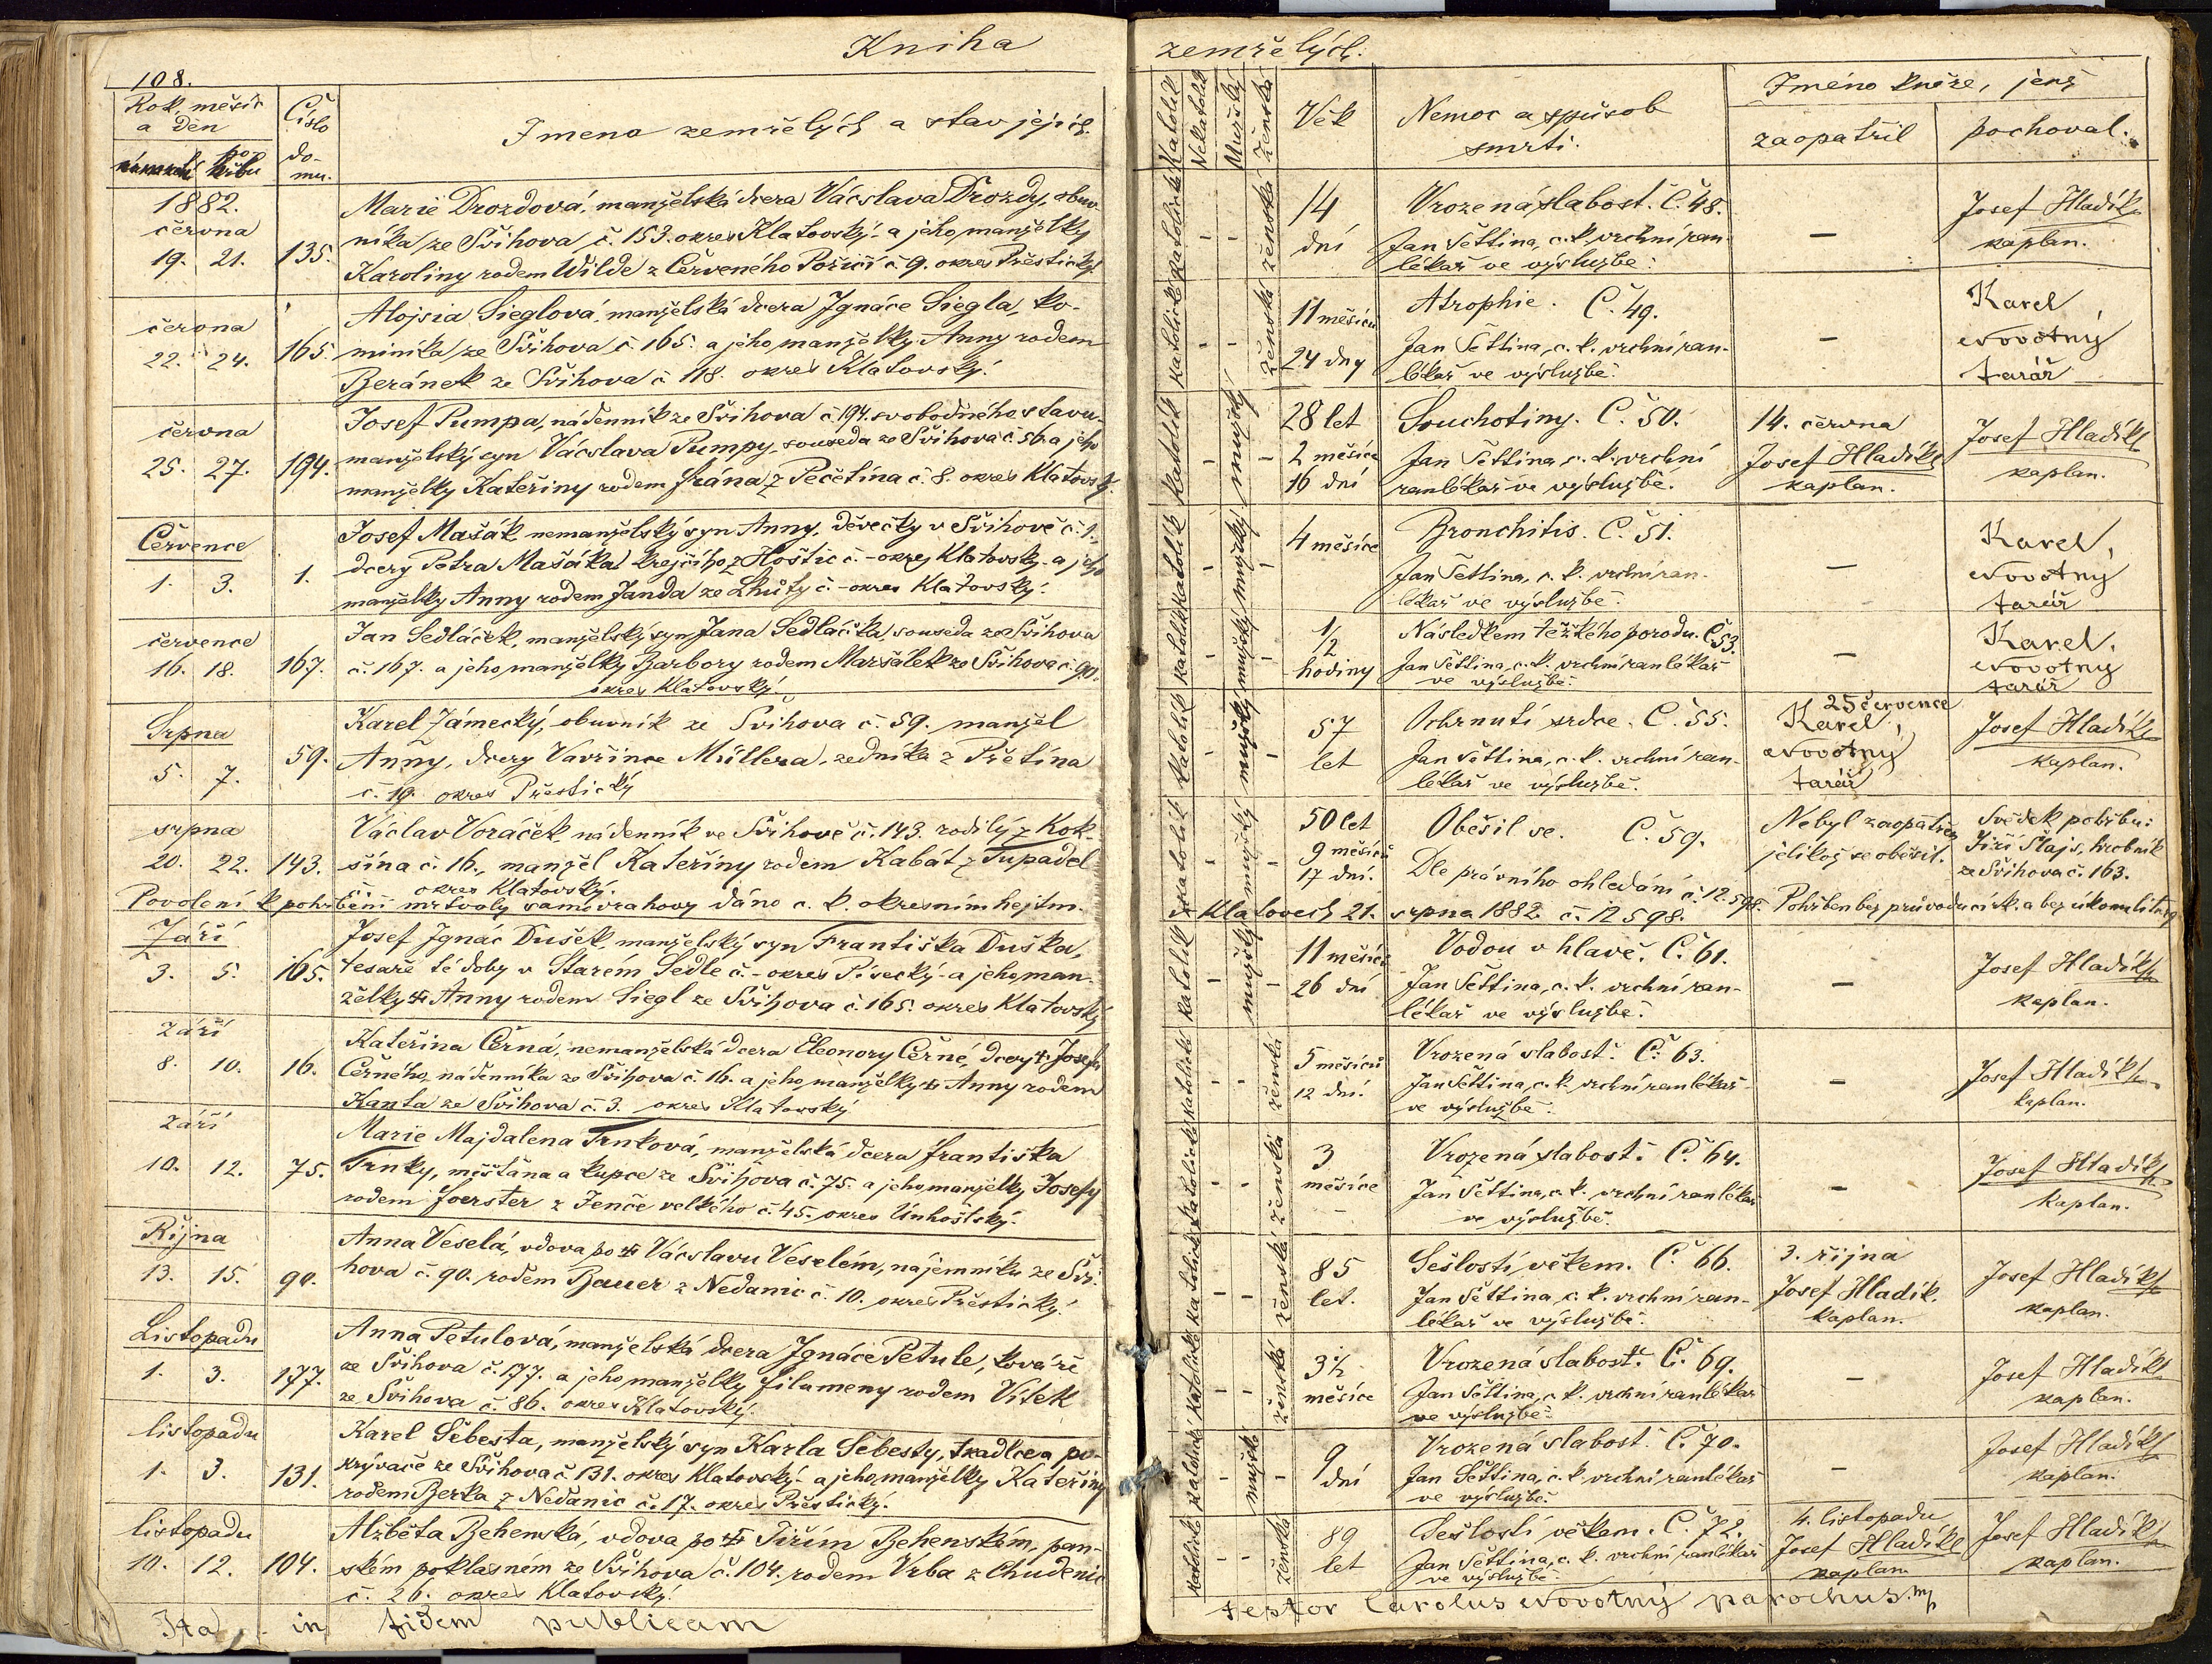 Kniha zemřelých.
108.
Rok, měsíc a den
po-
hřbu
Číslo do-
mu.
Jmena zemřelých a stav jejich.
Katolík
Nekatolík
Mužský
Ženská
Věk
Nemoc a spůsob smrti.
Jméno kněze, jenž
zaopatřil
pochoval.
1882.
června
19. 21.
135.
Marie Drozdová, manželská dcera Vácslava Drozdy, obuv-
níka ze Švihova č. 153. okres Klatovský a jeho manželky
Karoliny rodem Wilde z Červeného Poříčí č 9. okres Přestický.
katolická
- -
ženská
14
dní
Vrozená slabost. Č. 48.
Jan Šettina, c. k. vrchní ran-
lékař ve výslužbě.
-
Josef Hladík
kaplan.
června
22. 24.
165.
Alojsia Sieglová, manželská dcera Ignáce Siegla, ko-
miníka ze Švihova č. 165. a jeho manželky Anny rodem
Beránek ze Švihova č 118. okres Klatovský.
katolická
- -
ženská
11 měsíců
24 dny
Atrophie. Č. 49.
Jan Šettina, c. k. vrchní ran-
lékař ve výslužbě.
-
Karel
Novotný
farář
června
25. 27.
194.
Josef Pumpa, nádenník ze Švihova č. 194. svobodného stavu,
manželský syn Vácslava Pumpy, souseda ze Švihova č 56. a jeho
manželky Kateřiny rodem Frána z Pečetína č. 8. okres Klatovský.
katolík
-
mužský
-
28 let
2 měsíce
16 dní
Souchotiny. Č. 50.
Jan Šettina, c. k. vrchní
ranlékař ve výslužbě.
14. června
Josef Hladík
kaplan.
Josef Hladík
kaplan.
Července
1. 3.
1.
Josef Mašák, nemanželský syn Anny, děvečky v Švihově č. 1.,
dcery Petra Mašáka, krejčího z Hoštic č. - okres Klatovský a jeho
manželky Anny rodem Janda ze Lhůty č. - okres Klatovský.
katolík
-
mužský
-
4 měsíce
Bronchitis. Č. 51.
Jan Šettina, c. k. vrchní ran-
lékař ve výslužbě.
-
Karel
Novotný
farář
července
16. 18.
167.
Jan Sedláček, manželský syn Jana Sedláčka, souseda ze Švihova
č. 167. a jeho manželky Barbory rodem Maršálek ze Švihova č. 90.
okres Klatovský.
katolík
-
mužský
-
1/2
hodiny
Následkem těžkého porodu. Č 53.
Jan Šettina, c. k. vrchní ranlékař
ve výslužbě.
-
Karel
Novotný
farář
Srpna
5. 7.
59.
Karel Zámecký, obuvník ze Švihova č. 59. manžel
Anny, dcery Vavřince Müllera, zedníka z Přetína
č. 19. okres Přestický
katolík
-
mužský
-
57
let
Ochrnutí srdce. Č. 55.
Jan Šettina, c. k. vrchní ran-
lékař ve výslužbě.
25 července
Karel
Novotný
farář
Josef Hladík
kaplan.
srpna
20. 22.
143.
Václav Voráček, nádenník ve Švihově č. 143. rodilý z Kok-
šína č. 16., manžel Kateřiny rodem Kabát z Tupadel
okres Klatovský.
katolík
-
mužský
-
50 let
9 měsíců
17 dní.
Oběsil se. Č. 59.
Dle právního ohledání č. 12.598.
Nebyl zaopatřen,
jelikož se oběsil.
Svědek pohřbu:
Jiří Štajs, hrobník
ze Švihova č. 163.
Povolení k pohřbení mrtvoly samovrahovy dáno c. k. okresním hejtm.
v Klatovech 21. srpna 1882. č. 12598. Pohřben bez průvodu círk. a bez úkonu liturg.
Září
3. 5.
165.
Josef Ignác Dušek, manželský syn Františka Duška,
tesaře té doby v Starém Sedle č. - okres Písecký - a jeho man-
želky Anny rodem Siegl ze Švihova č. 165. okres Klatovský
katolík
-
mužský
-
11 měsíců
26 dní
Vodou v hlavě. Č. 61.
Jan Šettina, c. k. vrchní ran-
lékař ve výslužbě.
-
Josef Hladík
kaplan.
září
8. 10.
16.
Kateřina Černá, nemanželská dcera Eleonory Černé, dcery Josefa
Černého, nádenníka ze Švihova č. 16. a jeho manželky Anny rodem
Kanta ze Švihova č. 3. okres Klatovský
katolická
- -
ženská
5 měsíců
12 dní.
Vrozená slabost. Č. 63.
Jan Šettina, c. k. vrchní ranlékař
ve výslužbě.
-
Josef Hladík
kaplan.
září
10. 12.
75.
Marie Majdalena Trnková, manželská dcera Františka
Trnky, měšťana a kupce ze Švihova č. 75. a jeho manželky Josefy
rodem Foerster z Jenče velkého č. 45. okres Unhošťský.
katolická
- -
ženská
3
měsíce
Vrozená slabost. Č. 64.
Jan Šettina, c. k. vrchní ranlékař
ve výslužbě.
-
Josef Hladík
kaplan.
Října
13. 15.
90.
Anna Veselá, vdova po Vácslavu Veselém, nájemníku ze Švi-
hova č. 90. rodem Bauer z Nedanic č. 10. okres Přestický.
katolická
- -
ženská
85
let.
Sešlostí věkem. Č. 66.
Jan Šettina, c. k. vrchní ran-
lékař ve výslužbě.
3. října
Josef Hladík.
kaplan.
Josef Hladík
kaplan.
Listopadu
1. 3.
177.
Anna Petulová, manželská dcera Ignáce Petule, kováře
ze Švihova č. 177. a jeho manželky Filumeny rodem Vítek
ze Švihova č. 86. okres Klatovský.
katolická
- -
ženská
3 1/2
měsíce
Vrozená slabost. Č. 69.
Jan Šettina, c. k. vrchní ranlékař
ve výslužbě.
-
Josef Hladík
kaplan.
listopadu
1. 3.
131.
Karel Šebesta, manželský syn Karla Šebesty, tkadlce a po-
krývače ze Švihova č 131. okres Klatovský - a jeho manželky Kateřiny
rodem Berka z Nedanic č. 17. okres Přestický.
katolick
-
mužsk
-
9
dní
Vrozená slabost. Č. 70.
Jan Šettina, c. k. vrchní ranlékař
ve výslužbě.
-
Josef Hladík
kaplan.
listopadu
10. 12.
104.
Alžběta Behenská, vdova po Jiřím Behenském, pan-
ském poklasném ze Švihova č. 104. rodem Vrba z Chudenic
č. 26. okres Klatovský.
katolická
- -
ženská
89
let
Sešlostí věkem. Č. 72.
Jan Šettina, c. k. vrchní ranlékař
ve výslužbě.
4. listopadu
Josef Hladík
kaplan.
Josef Hladík
kaplan.
Ita in fidem publicam testor Carolus Novotný parochus mp